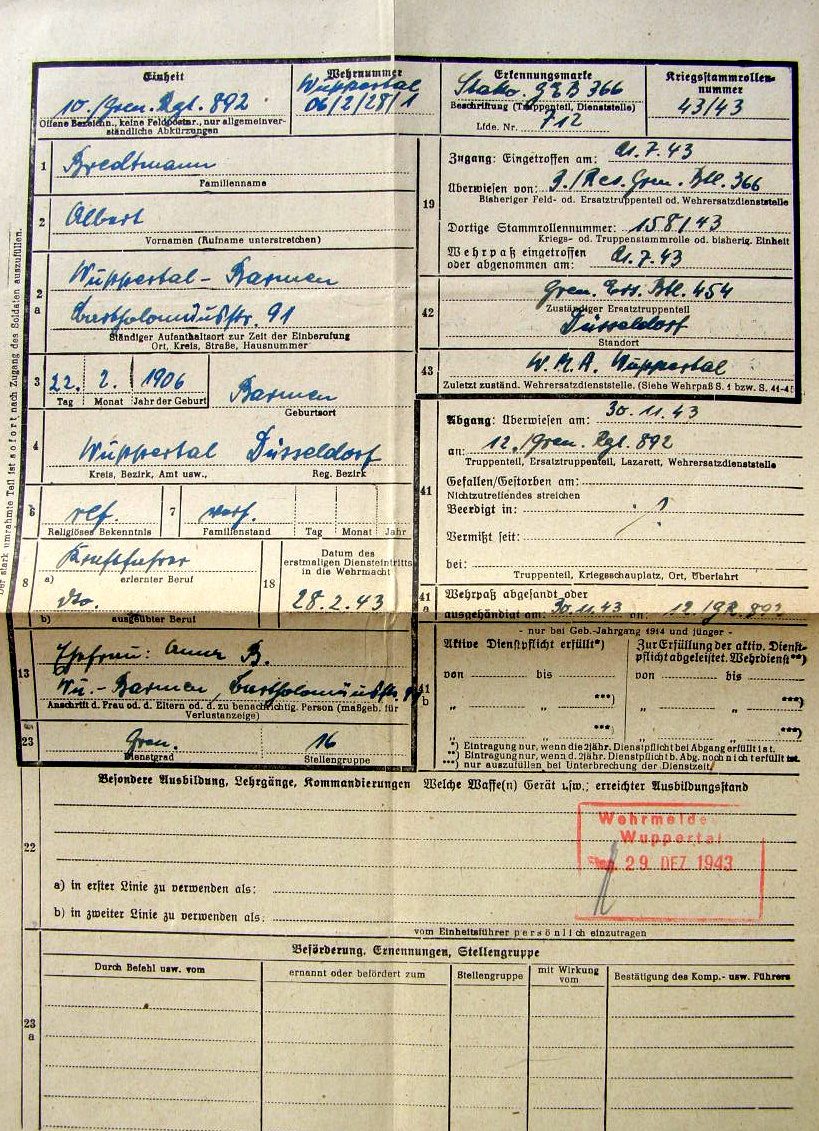 Einheit
10./Gren. Rgt. 892
Offene Bezeichn., keine Feldpostnr., nur allgemeinver-
ständliche Abkürzungen
Wehrnummer
Wuppertal
06/2/28/1
Erkennungsmarke
366
Beschriftung (Truppenteil, Dienststelle)
Lfde. Nr. 712
Kriegsstammrollen-
nummer
43/43
Der stark umrahmte Teil ist sofort nach Zugang des Soldaten auszufüllen.
1
Bredtmann
Familienname
2
Albert
Vornamen (Rufname unterstreichen)
2
a
Wuppertal-Barmen
Bartholomäusstr. 91
Ständiger Aufenthaltsort zur Zeit der Einberufung
Ort, Kreis, Straße, Hausnummer
3
22. 2. 1906
Tag Monat Jahr der Geburt
Barmen
Geburtsort
4
Wuppertal Düsseldorf
Kreis, Bezirk, Amt usw., Reg. Bezirk
6
ref.
Religiöses Bekenntnis
7
verh.
Familienstand Tag Monat Jahr
8
Kraftfahrer
a) erlernter Beruf
dto.
b) ausgeübter Beruf
18
Datum des
erstmaligen Diensteintritts
in die Wehrmacht
28.2.43
13
Ehefrau: Anna B.
Wu.-Barmen, Bartholomäusstr. 91
Anschrift d. Frau od. d. Eltern od. d. zu benachrichtig. Person (maßgeb. für
Verlustanzeige)
23
Gren. 16
Dienstgrad Stellengruppe
19
Zugang: Eingetroffen am: 7.43
Überwiesen von: /Res. Gren. Btl. 366
Bisheriger Feld- od. Ersatztruppenteil od. Wehrersatzdienststelle
Dortige Stammrollennummer: 158/43
Kriegs- od. Truppenstammrolle od. bisherig. Einheit
Wehrpaß eingetroffen
oder abgenommen am: 7.43
42
Gren. Ers. Btl. 454
Zuständiger Ersatztruppenteil
Düsseldorf
Standort
43
W.M.A. Wuppertal
Zuletzt zuständ. Wehrersatzdienststelle. (Siehe Wehrpaß S. 1 bzw. S. 41-4
41
Abgang: Überwiesen am: 30.11.43
an: 12./Gren. Rgt. 892
Truppenteil, Ersatztruppenteil, Lazarett, Wehrersatzdienststelle
Gefallen/Gestorben am:
Nichtzutreffendes streichen
Beerdigt in:
Vermißt seit:
bei:
Truppenteil, Kriegsschauplatz, Ort, Überfahrt
41
a
Wehrpaß abgesandt oder
ausgehändigt am: 30.11.43 an: 12./GR. 892
- nur bei Geb.-Jahrgang 1914 und jünger -
41
b
Aktive Dienstpflicht erfüllt*)
von bis
" " ***)
" " ***)
Zur Erfüllung der aktiv. Dienst-
pflicht abgeleistet. Wehrdienst**)
von bis
" " ***)
" " ***)
*) Eintragung nur, wenn die 2jähr. Dienstpflicht bei Abgang erfüllt ist.
**) Eintragung nur, wenn d. 2jähr. Dienstpflicht b. Abg. noch nicht erfüllt ist.
***) nur auszufüllen bei Unterbrechung der Dienstzeit
22
Besondere Ausbildung, Lehrgänge, Kommandierungen Welche Waffe(n) Gerät usw.; erreichter Ausbildungsstand
Wehrmelde
Wuppertal
29. DEZ 1943
a) in erster Linie zu verwenden als:
b) in zweiter Linie zu verwenden als:
vom Einheitsführer persönlich einzutragen
23
a
Beförderung, Ernennungen, Stellengruppe
Durch Befehl usw. vom
ernannt oder befördert zum
Stellengruppe
mit Wirkung
vom
Bestätigung des Komp.- usw. Führers